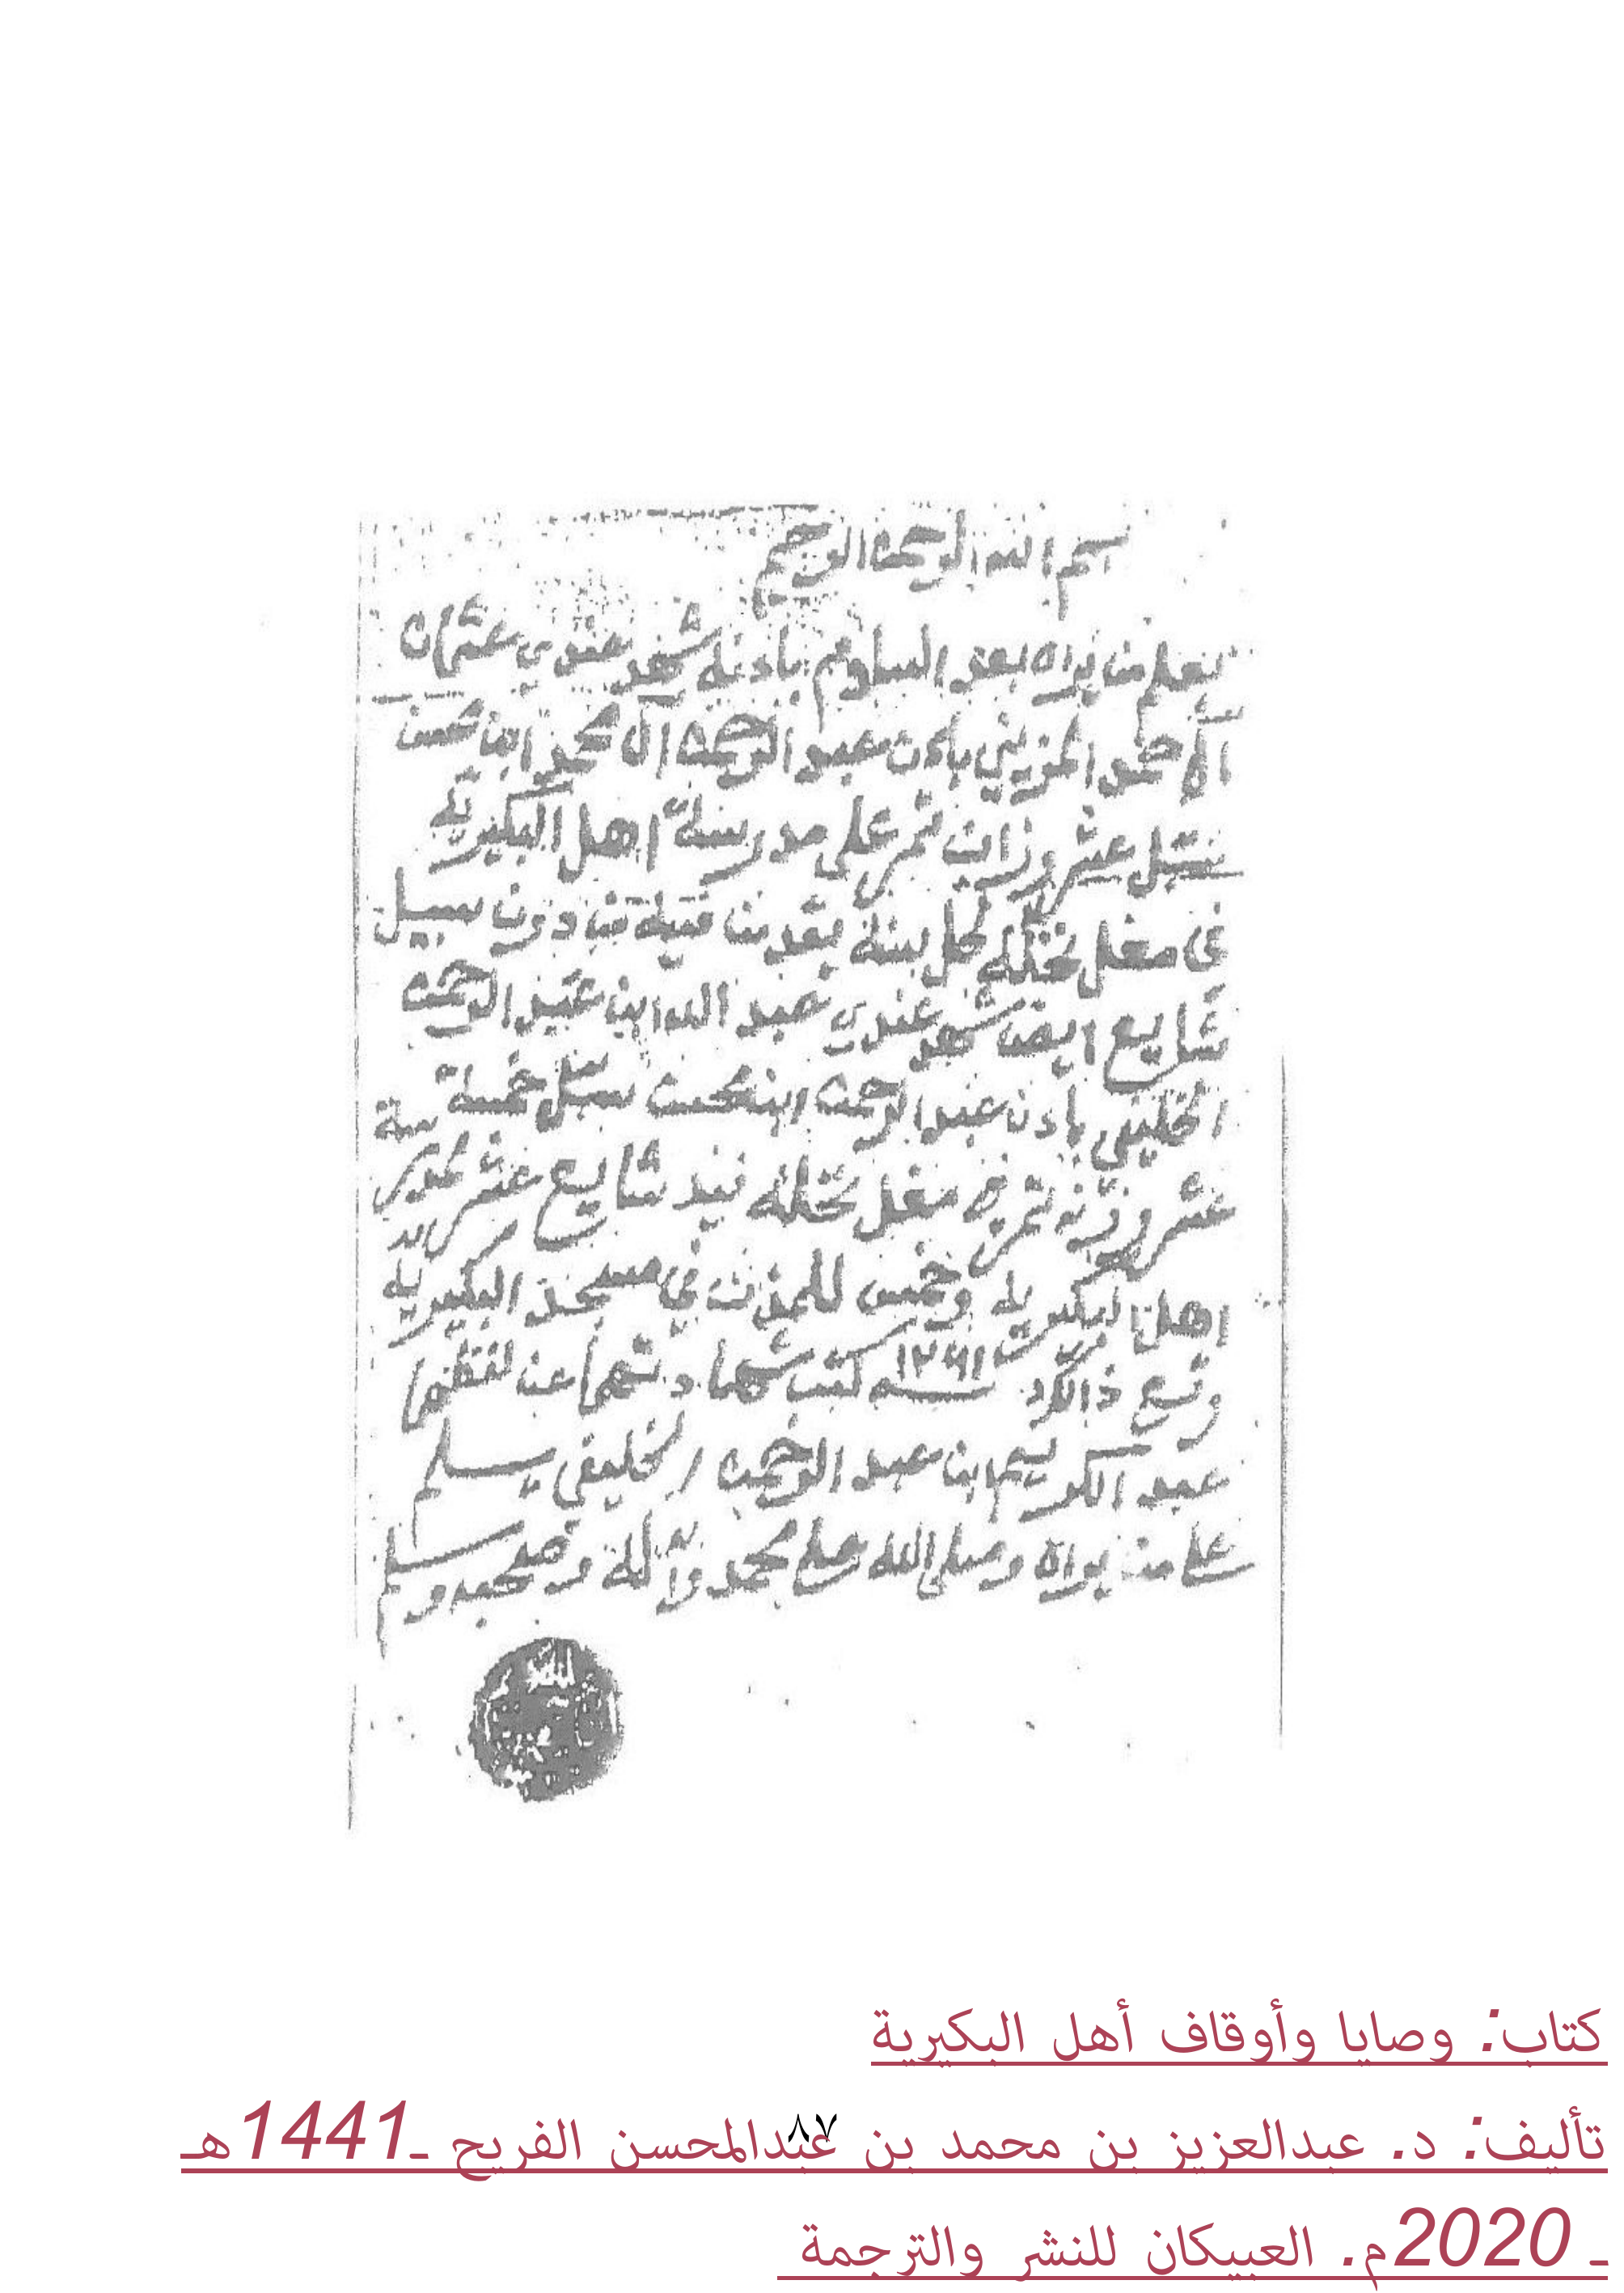 بسم الله الرحمن الرحيم
يعلم من يراه بعد السلام بادنه شهد عندي عثمان
الاحمد المزيني بان عبد الرحمن ال محمد ابن محسن
سبل عشر وزان تمر على مدرسة اهل البكيريه
في مغل نخله لكل سنة دون سبيل
شايع ايضا شهد عندي عبد الله ابن عبد الرحمن
الخليفي بان عبد الرحمن ابن محسن سبل خمسة
عشر وزنه تمر في مغل نخله شايع عشر لمدرسة
اهل البكيريه وخمس للمذن في مسجد البكيريه
وقع ذالك سنه ١٢٩١ كتب شهادتهما عن لفظهما
عبد الكريم ابن عبد الرحمن الخليفي يسلم
على من يراه وصلى الله على محمد واله وصحبه وسلم
كتاب: وصايا وأوقاف أهل البكيرية
٨٧
تأليف: د. عبدالعزيز بن محمد بن عبدالمحسن الفريح ـ1441هـ
ـ 2020م. العبيكان للنشر والترجمة